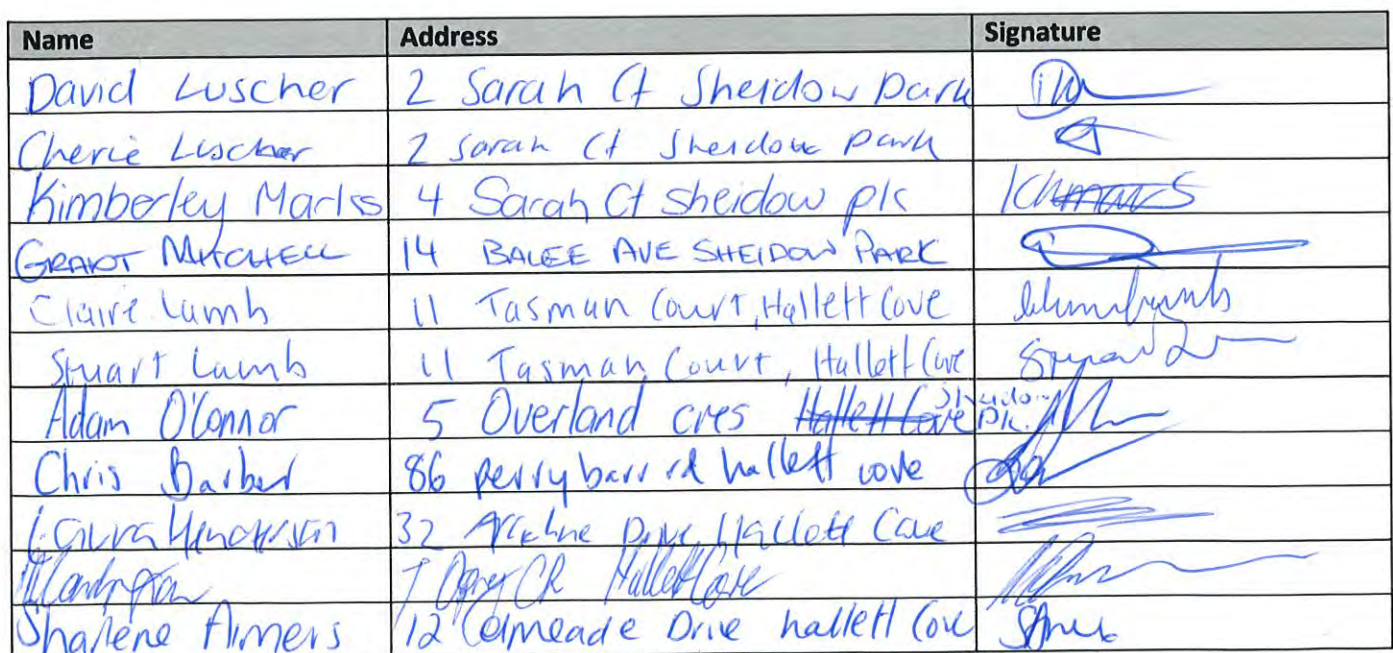 Name Address Signature
David Luscher 2 Sarah Ct Sheidow Park
Cherie Luscher 2 Sarah Ct Sheidow Park
Kimberley Marks 4 Sarah Ct Sheidow pk
GRANT MITCHELL 14 BALEE AVE SHEIDOW PARK
Claire Lamb 11 Tasman Court, Hallett Cove
Stuart Lamb 11 Tasman Court, Hallett Cove
Adam O'Connor 5 Overland cres Hallett Cove Sheidow Pk.
Chris Barber 86 perry barr rd hallett cove
Laura Henderson 32 Drive, Hallett Cove
7 CR Hallett Cove
Sharlene Aimers 12 Colmeade Drive hallett Cove